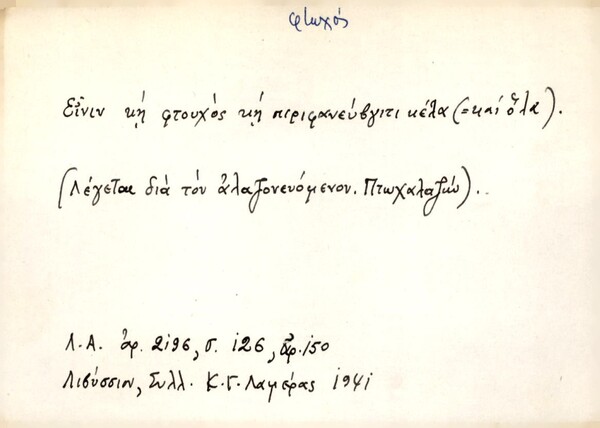 φτωχός
Εἶνιν κῄ φτουχός κῄ περιφανεύβγιτι κέλα (= καί ὅλα).
(Λέγεται διά τόν ἀλαζονευόμενον. Πτωχαλαζών)..
Λ.Α. ἀρ. 2196, σ. 126, ἀρ. 150
Λιβύσσιον, Συλλ. Κ.Γ. Λαμέρας 1941